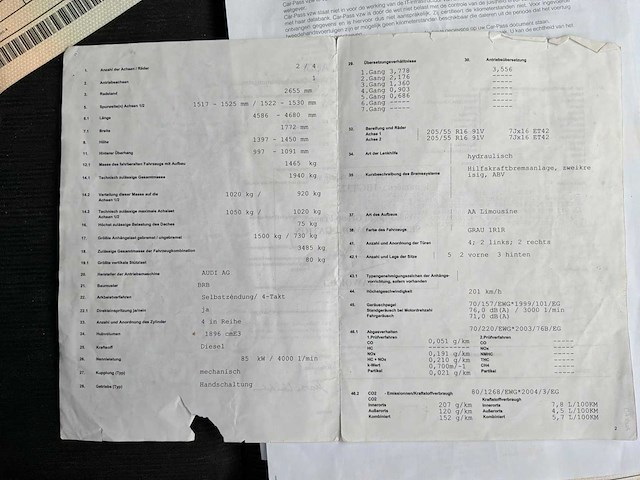 1. Anzahl der Achsen / Räder 2 / 4
2. Antriebsachsen 1
3. Radstand 2655 mm
5. Spurweite(n) Achsen 1/2 1517 - 1525 mm / 1522 - 1530 mm
6.1 Länge 4586 - 4680 mm
7.1 Breite 1772 mm
8. Höhe 1397 - 1450 mm
11. Hinterer Überhang 997 - 1091 mm
12.1 Masse des fahrbereiten Fahrzeugs mit Aufbau 1465 kg
14.1 Technisch zulässige Gesamtmasse 1940 kg
14.2 Verteilung dieser Masse auf die Achsen 1/2 1020 kg / 920 kg
14.3 Technisch zulässige maximale Achslast Achsen 1/2 1050 kg / 1020 kg
16. Höchst zulässige Belastung des Daches 75 kg
17. Größte Anhängelast gebremst / ungebremst 1500 kg / 730 kg
18. Zulässige Gesamtmasse der Fahrzeugkombination 3485 kg
19.1 Größte vertikale Stützlast 80 kg
20. Hersteller der Antriebsmaschine AUDI AG
21. Baumuster BRB
22. Arbeitsverfahren Selbstzündung/ 4-Takt
22.1 Direkteinspritzung ja/nein ja
23. Anzahl und Anordnung der Zylinder 4 in Reihe
24. Hubvolumen 1896 cmE3
25. Kraftstoff Diesel
26. Nennleistung 85 kW / 4000 1/min
27. Kupplung (Typ) mechanisch
28. Getriebe (Typ) Handschaltung
29. Übersetzungsverhältnisse
1.Gang 3,778
2.Gang 2,176
3.Gang 1,360
4.Gang 0,903
5.Gang 0,686
6.Gang -----
7.Gang -----
30. Achsübersetzung
3,556
-----
-----
-----
-----
-----
32. Bereifung und Räder
Achse 1 205/55 R16 91V 7Jx16 ET42
Achse 2 205/55 R16 91V 7Jx16 ET42
34. Art der Lenkhilfe hydraulisch
35. Kurzbeschreibung des Bremssystems Hilfskraftbremsanlage, zweikre
isig, ABV
37. Art des Aufbaus AA Limousine
38. Farbe des Fahrzeugs GRAU IR1R
41. Anzahl und Anordnung der Türen 4; 2 links; 2 rechts
42.1 Anzahl und Lage der Sitze 5 2 vorne 3 hinten
43.1 Typgenehmigungszeichen der Anhänge-
vorrichtung, sofern vorhanden
44. Höchstgeschwindigkeit 201 km/h
45. Geräuschpegel 70/157/EWG*1999/101/EG
Standgeräusch bei Motordrehzahl 76,0 dB(A) / 3000 1/min
Fahrgeräusch 71,0 dB(A)
46.1 Abgasverhalten 70/220/EWG*2003/76B/EG
1.Prüfverfahren 2.Prüfverfahren
CO 0,051 g/km CO -----
HC ----- NOx -----
NOx 0,191 g/km NMHC -----
HC + NOx 0,210 g/km THC -----
k-Wert 0,700m/-1 CH4 -----
Partikel 0,021 g/km Partikel -----
46.2 CO2 - Emissionen/Kraftstoffverbrauch 80/1268/EWG*2004/3/EG
CO2 Kraftstoffverbrauch
Innerorts 207 g/km Innerorts 7,8 L/100KM
Außerorts 120 g/km Außerorts 4,5 L/100KM
Kombiniert 152 g/km Kombiniert 5,7 L/100KM
2